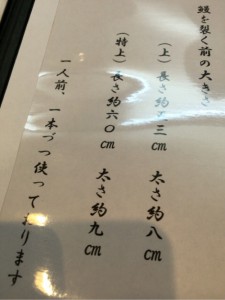 鰻を裂く前の大きさ
(上)長さ約五三cm 太さ約八cm
(特上)長さ約六〇cm 太さ約九cm
一人前、一本づつ使っております